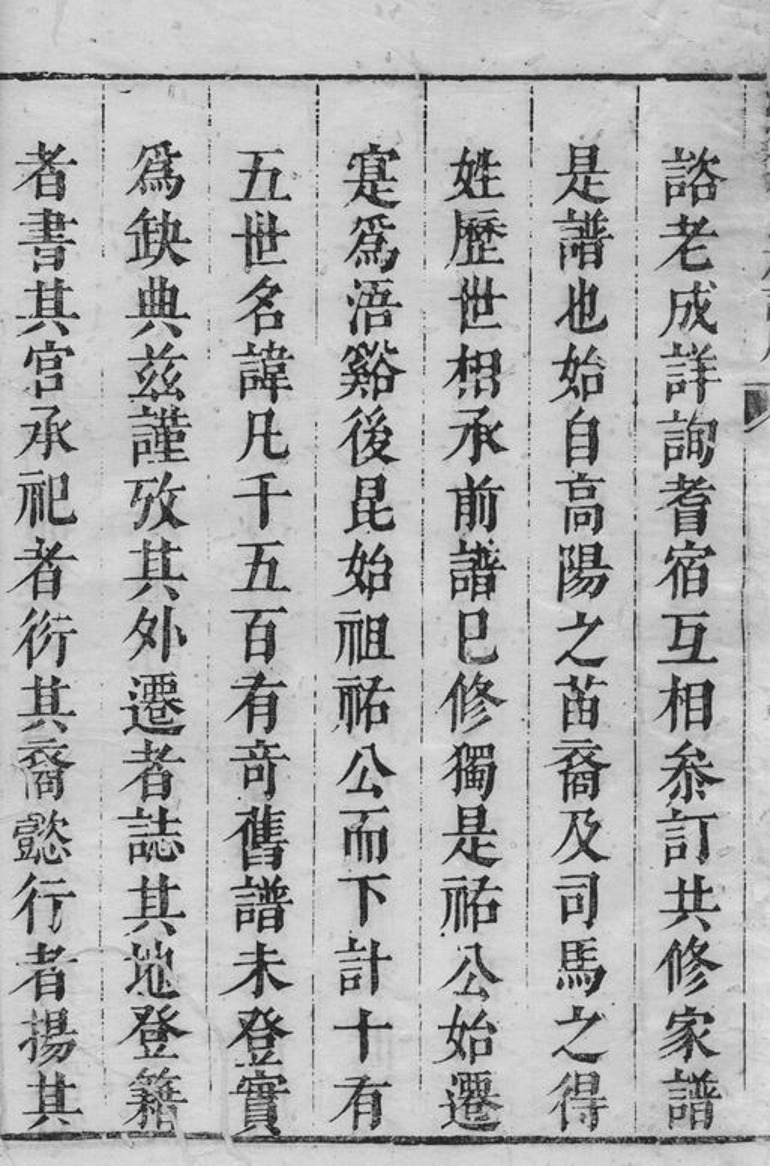 諮老成詳詢耆宿互相叅訂共修家譜
是譜也始自高陽之苗裔及司馬之得
姓歷世相承前譜已修獨是祐公始遷
寔爲浯谿後昆始祖祐公而下計十有
五世名諱凡千五百有奇舊譜未登實
爲缺典茲謹攷其外遷者誌其地登籍
者書其官承祀者衍其裔懿行者揚其